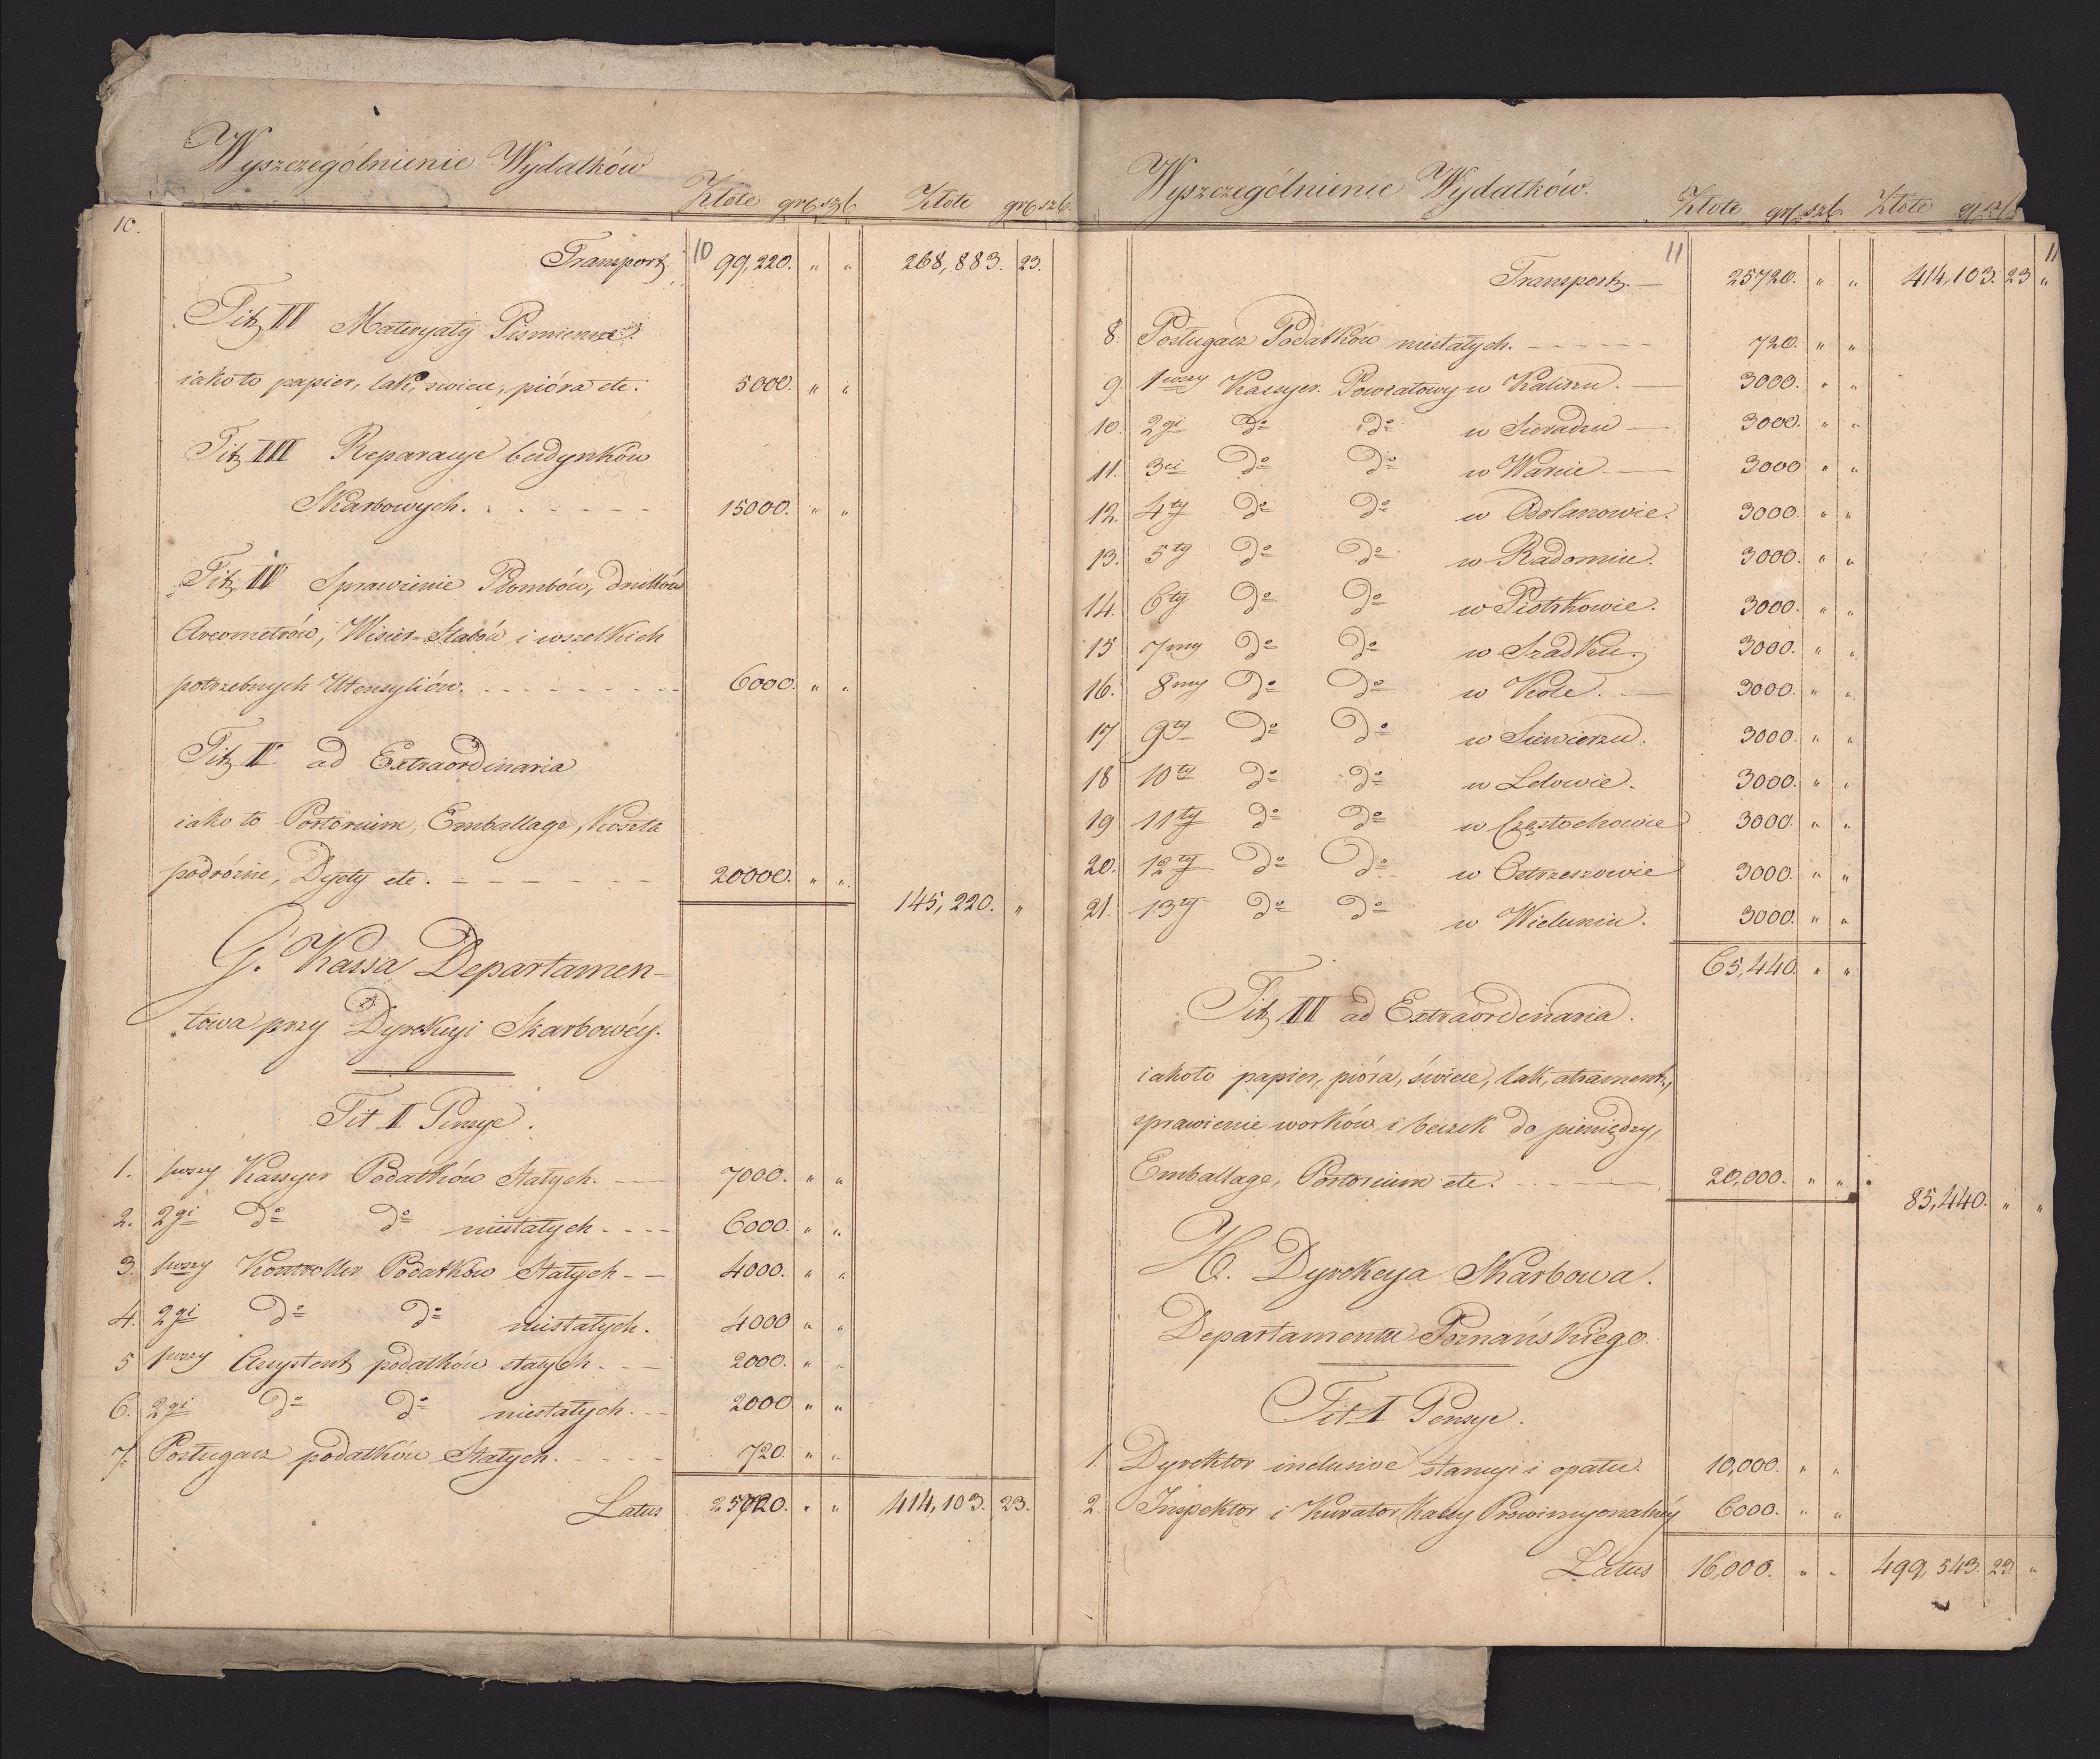 Wyszczególnienie Wydatków
Złote gr: szb. Złote gr: szb.
10.
10
Transport. 99,220. " " 268,883. 23.
Tit II Materyały Piśmienne.
iako to papier, lak, świece, pióra etc. 5000. " "
Tit III Reparacye budynków
Skarbowych. 15000. " "
Tit IV Sprawienie Plombów, druków
Areometrów, Wisier-Stabów i wszelkich
potrzebnych Utensyliów. 6000. " "
Tit V ad Extraordinaria
iako to Portorium, Emballage, Koszta
podróżne, Dyety etc. 20000. " "
145,220. "
G. Kassa Departamen-
towa przy Dyrekcyi Skarbowéy.
Tit I Pensye.
1. 1wszy Kassyer Podatków Stałych. 7000. " "
2. 2gi do do niestałych 6000. " "
3. 1wszy Kontroller Podatków Stałych 4000. " "
4. 2gi do do niestałych. 4000 " "
5 1wszy Assystent podatków stałych 2000. " "
6. 2gi do do niestałych. 2000 " "
7. Posługacz podatków Stałych. 720. " "
Latus 25720. " " 414,103. 23.
Wyszczególnienie Wydatków.
Złote gr: szb. Złote gr szb
11
11
Transport. 25720. " " 414,103. 23 "
8. Posługacz Podatków niestałych. 720. " "
9 1wszy Kassyer Powiatowy w Kaliszu. 3000. " "
10. 2gi do do w Sieradzu 3000. " "
11. 3ci do do w Warcie 3000 " "
12. 4ty do do w Odolanowie. 3000. " "
13. 5ty do do w Radomiu. 3000. " "
14. 6ty do do w Piotrkowie. 3000. " "
15 7my do do w Szadku. 3000. " "
16. 8my do do w Kole. 3000. " "
17 9ty do do w Siewierzu. 3000. " "
18 10ty do do w Lelowie. 3000. " "
19 11ty do do w Częstochowie 3000. " "
20. 12ty do do w Ostrzeszowie 3000. " "
21. 13ty do do w Wieluniu. 3000. " "
65,440. " "
Tit III ad Extraordinaria.
iako to papier, pióra, świece, lak, atrament,
sprawienie worków i beczek do pieniędzy,
Emballage, Portorium etc. 20,000. " "
85,440. " "
H. Dyrekcya Skarbowa.
Departamentu Poznańskiego.
Tit I Pensye.
1. Dyrektor inclusive stancyi i opału. 10,000. " "
2. Inspektor i Kurator Kassy Prowincyonalnéy 6000. " "
Latus 16,000. " " 499,543. 23 "